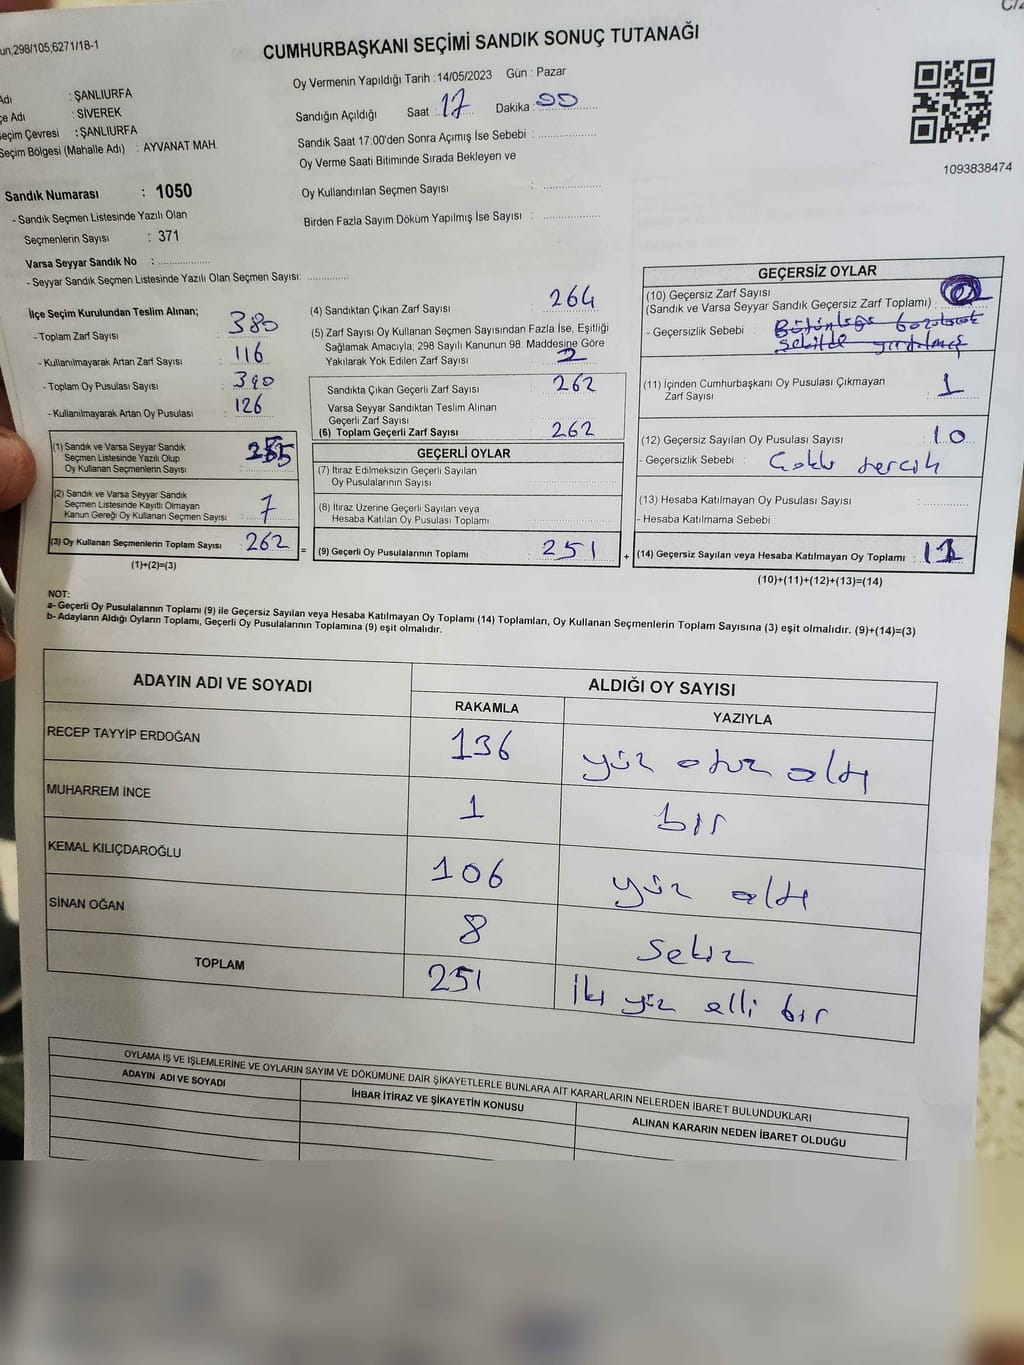 un;298/105;6271/18-1
CUMHURBAŞKANI SEÇİMİ SANDIK SONUÇ TUTANAĞI
Oy Vermenin Yapıldığı Tarih :14/05/2023 Gün : Pazar
Sandığın Açıldığı Saat : 17 Dakika : 00
Sandık Saat 17:00'den Sonra Açımış İse Sebebi :
Oy Verme Saati Bitiminde Sırada Bekleyen ve
Oy Kullandırılan Seçmen Sayısı :
Birden Fazla Sayım Döküm Yapılmış İse Sayısı :
1093838474
Adı : ŞANLIURFA
çe Adı : SİVEREK
eçim Çevresi : ŞANLIURFA
Seçim Bölgesi (Mahalle Adı) : AYVANAT MAH.
Sandık Numarası : 1050
- Sandık Seçmen Listesinde Yazılı Olan
Seçmenlerin Sayısı : 371
Varsa Seyyar Sandık No :
- Seyyar Sandık Seçmen Listesinde Yazılı Olan Seçmen Sayısı:
İlçe Seçim Kurulundan Teslim Alınan;
- Toplam Zarf Sayısı : 380
- Kullanılmayarak Artan Zarf Sayısı : 116
- Toplam Oy Pusulası Sayısı : 390
- Kullanılmayarak Artan Oy Pusulası : 126
(1) Sandık ve Varsa Seyyar Sandık
Seçmen Listesinde Yazılı Olup
Oy Kullanan Seçmenlerin Sayısı : 255
(2) Sandık ve Varsa Seyyar Sandık
Seçmen Listesinde Kayıtlı Olmayan
Kanun Gereği Oy Kullanan Seçmen Sayısı : 7
(3) Oy Kullanan Seçmenlerin Toplam Sayısı : 262
(1)+(2)=(3)
(4) Sandıktan Çıkan Zarf Sayısı : 264
(5) Zarf Sayısı Oy Kullanan Seçmen Sayısından Fazla İse, Eşitliği
Sağlamak Amacıyla; 298 Sayılı Kanunun 98. Maddesine Göre
Yakılarak Yok Edilen Zarf Sayısı : 2
Sandıkta Çıkan Geçerli Zarf Sayısı : 262
Varsa Seyyar Sandıktan Teslim Alınan
Geçerli Zarf Sayısı :
(6) Toplam Geçerli Zarf Sayısı : 262
GEÇERLİ OYLAR
(7) İtiraz Edilmeksizin Geçerli Sayılan
Oy Pusulalarının Sayısı :
(8) İtiraz Üzerine Geçerli Sayılan veya
Hesaba Katılan Oy Pusulası Toplamı :
= (9) Geçerli Oy Pusulalarının Toplamı : 251 +
GEÇERSİZ OYLAR
(10) Geçersiz Zarf Sayısı
(Sandık ve Varsa Seyyar Sandık Geçersiz Zarf Toplamı) :
- Geçersizlik Sebebi : Bütünlüğü bozulacak
şekilde yırtılmış
(11) İçinden Cumhurbaşkanı Oy Pusulası Çıkmayan
Zarf Sayısı : 1
(12) Geçersiz Sayılan Oy Pusulası Sayısı : 10
- Geçersizlik Sebebi : Çoklu tercih
(13) Hesaba Katılmayan Oy Pusulası Sayısı :
- Hesaba Katılmama Sebebi :
(14) Geçersiz Sayılan veya Hesaba Katılmayan Oy Toplamı : 11
(10)+(11)+(12)+(13)=(14)
NOT:
a- Geçerli Oy Pusulalarının Toplamı (9) ile Geçersiz Sayılan veya Hesaba Katılmayan Oy Toplamı (14) Toplamları, Oy Kullanan Seçmenlerin Toplam Sayısına (3) eşit olmalıdır. (9)+(14)=(3)
b- Adayların Aldığı Oyların Toplamı, Geçerli Oy Pusulalarının Toplamına (9) eşit olmalıdır.
ADAYIN ADI VE SOYADI ALDIĞI OY SAYISI
RAKAMLA YAZIYLA
RECEP TAYYİP ERDOĞAN 136 yüz otuz altı
MUHARREM İNCE 1 bir
KEMAL KILIÇDAROĞLU 106 yüz altı
SİNAN OĞAN 8 Sekiz
TOPLAM 251 İki yüz elli bir
OYLAMA İŞ VE İŞLEMLERİNE VE OYLARIN SAYIM VE DÖKÜMÜNE DAİR ŞİKAYETLERLE BUNLARA AİT KARARLARIN NELERDEN İBARET BULUNDUKLARI
ADAYIN ADI VE SOYADI İHBAR İTİRAZ VE ŞİKAYETİN KONUSU ALINAN KARARIN NEDEN İBARET OLDUĞU